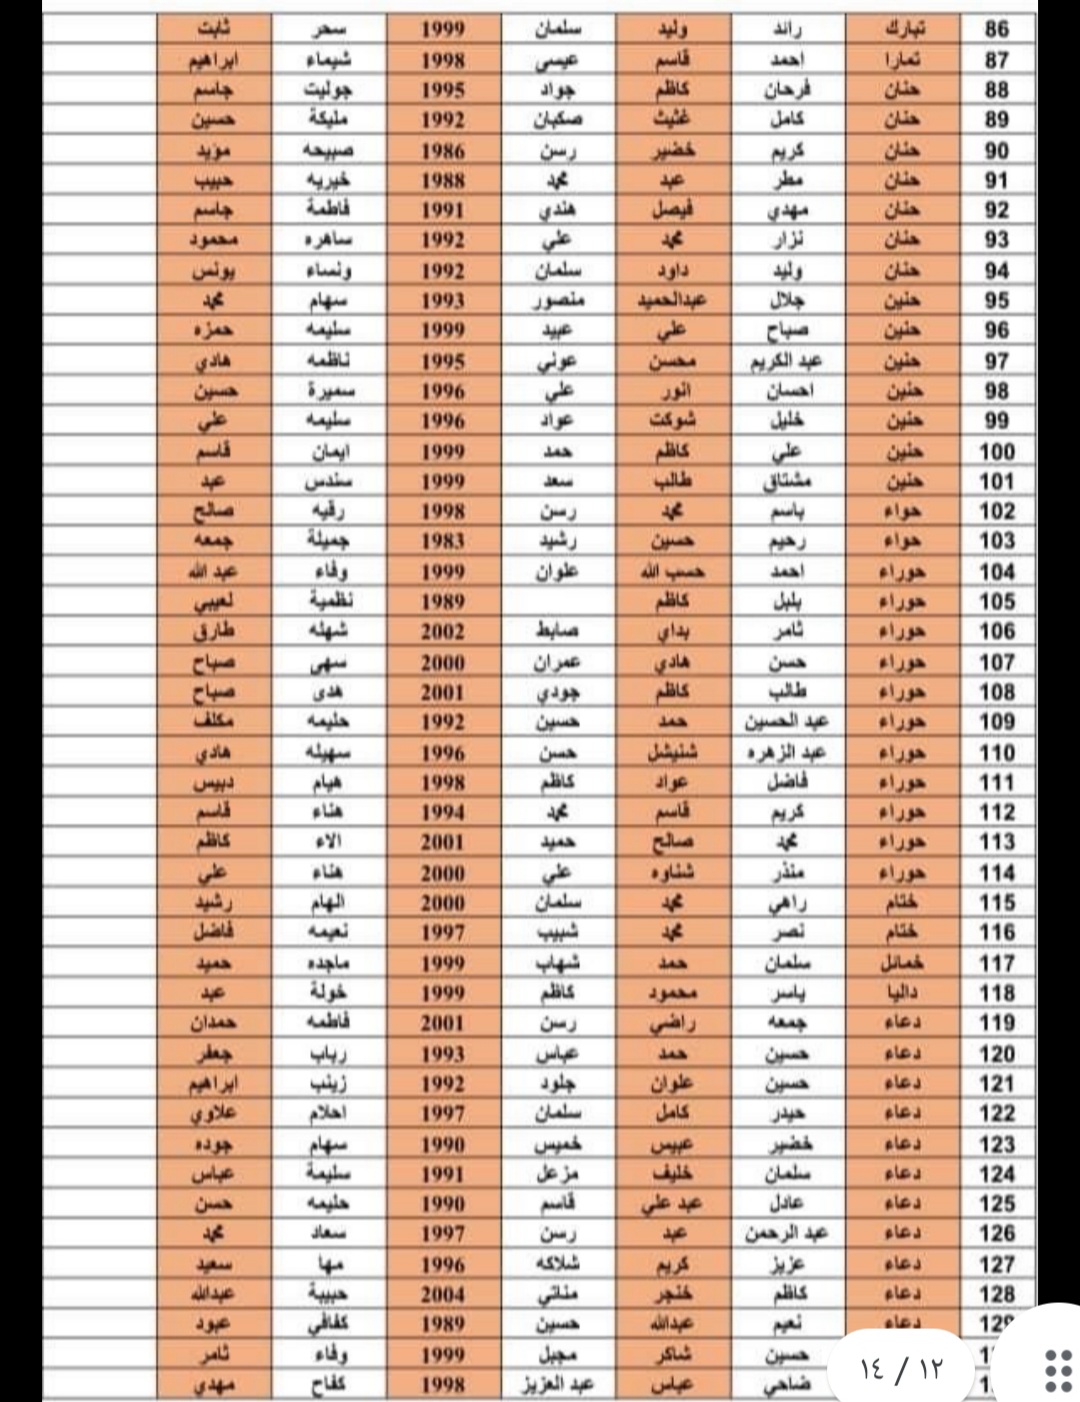 86 تبارك رائد وليد سلمان 1999 سحر ثابت
87 تمارا احمد قاسم عيسى 1998 شيماء ابراهيم
88 حنان فرحان كاظم جواد 1995 جوليت جاسم
89 حنان كامل غثيث صكبان 1992 مليكة حسين
90 حنان كريم خضير رسن 1986 صبيحه مؤيد
91 حنان مطر عبد محمد 1988 خيريه حبيب
92 حنان مهدي فيصل هندي 1991 فاطمة جاسم
93 حنان نزار محمد علي 1992 ساهره محمود
94 حنان وليد داود سلمان 1992 ونساء يونس
95 حنين جلال عبدالحميد منصور 1993 سهام محمد
96 حنين صباح علي عبيد 1999 سليمه حمزه
97 حنين عبد الكريم محسن عوني 1995 ناظمه هادي
98 حنين احسان انور علي 1996 سميرة حسين
99 حنين خليل شوكت عواد 1996 سليمه علي
100 حنين علي كاظم حمد 1999 ايمان قاسم
101 حنين مشتاق طالب سعد 1999 سندس عبد
102 حواء باسم محمد رسن 1998 رقيه صالح
103 حواء رحيم حسين رشيد 1983 جميلة جمعه
104 حوراء احمد حسب الله علوان 1999 وفاء عبد الله
105 حوراء بلبل كاظم 1989 نظمية لعيبي
106 حوراء ثامر بداي صابط 2002 شهله طارق
107 حوراء حسن هادي عمران 2000 سهى صباح
108 حوراء طالب كاظم جودي 2001 هدى صباح
109 حوراء عبد الحسين حمد حسين 1992 حليمه مكلف
110 حوراء عبد الزهره شنيشل حسن 1996 سهيله هادي
111 حوراء فاضل عواد كاظم 1998 هيام دبيس
112 حوراء كريم قاسم محمد 1994 هناء قاسم
113 حوراء محمد صالح حميد 2001 الاء كاظم
114 حوراء منذر شناوه علي 2000 هناء علي
115 ختام راهي محمد سلمان 2000 الهام رشيد
116 ختام نصر محمد شبيب 1997 نعيمه فاضل
117 خمائل سلمان حمد شهاب 1999 ماجده حميد
118 داليا ياسر محمود كاظم 1999 خولة عبد
119 دعاء جمعه راضي رسن 2001 فاطمه حمدان
120 دعاء حسين حمد عباس 1993 رباب جعفر
121 دعاء حسين علوان جلود 1992 زينب ابراهيم
122 دعاء حيدر كامل سلمان 1997 احلام علاوي
123 دعاء خضير عبيس خميس 1990 سهام جوده
124 دعاء سلمان خليف مزعل 1991 سليمة عباس
125 دعاء عادل عبد علي قاسم 1990 حليمه حسن
126 دعاء عبد الرحمن عبد رسن 1997 سعاد محمد
127 دعاء عزيز كريم شلاكه 1996 مها سعيد
128 دعاء كاظم خنجر مناتي 2004 حبيبة عبدالله
129 دعاء نعيم عبدالله حسين 1989 كفافي عبود
حسين شاكر مجبل 1999 وفاء ثامر
ضاحي عباس عبد العزيز 1998 كفاح مهدي
١٢ / ١٤